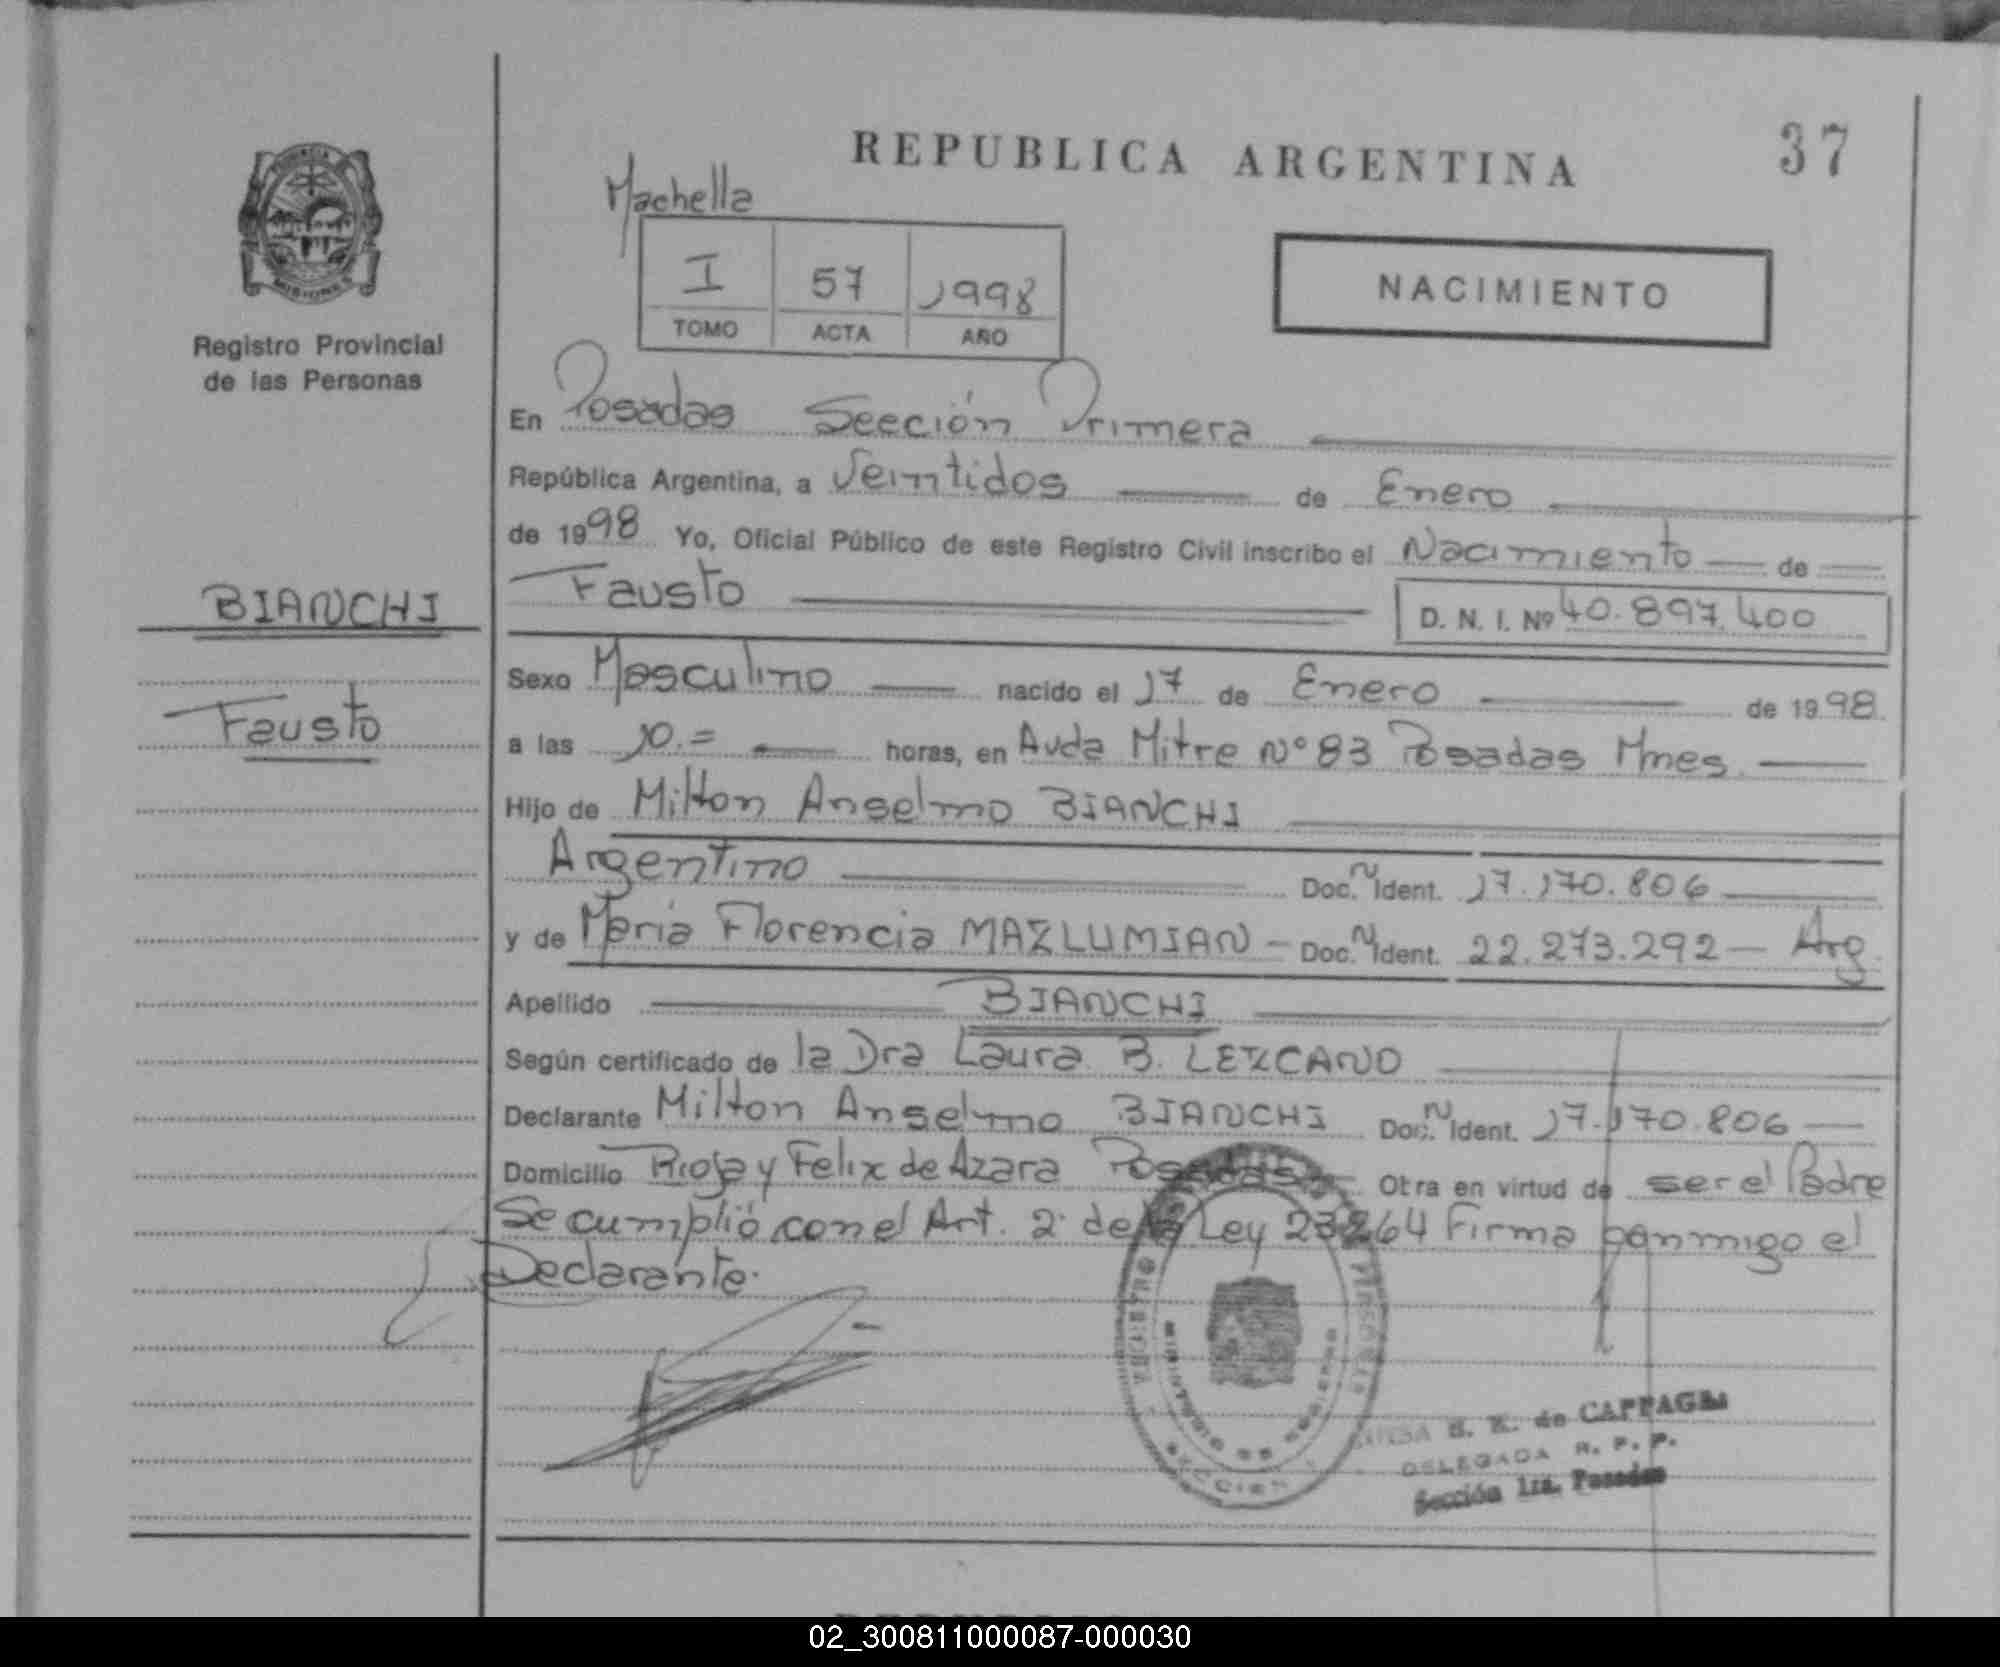 REPUBLICA ARGENTINA
37
Machella
I 57 1998
TOMO ACTA AÑO
NACIMIENTO
MISIONES
Registro Provincial
de las Personas
En Posadas Sección Primera
República Argentina, a Veintidos de Enero
de 1998 Yo, Oficial Público de este Registro Civil inscribo el Nacimiento de
Fausto D. N. I. Nº 40.897.400
BIANCHI
Fausto
Sexo Masculino nacido el 17 de Enero de 1998
a las 10.= horas, en Avda Mitre Nº 83 Posadas Mnes
Hijo de Milton Anselmo BIANCHI
Argentino Doc. N Ident. 17.170.806
y de María Florencia MAZLUMIAN - Doc. N Ident. 22.273.292 - Arg.
Apellido BIANCHI
Según certificado de la Dra Laura B. LEZCANO
Declarante Milton Anselmo BIANCHI Doc. N Ident. 17.170.806
Domicilio Rioja y Felix de Azara Posadas Otra en virtud de ser el Padre
Se cumplió con el Art. 2º de la Ley 23264 Firma conmigo el
Declarante.
MINISTERIO DE GOBIERNO
SECCION
de
DELEGADA R. P. P.
Sección 1ra. Posadas
02_300811000087-000030